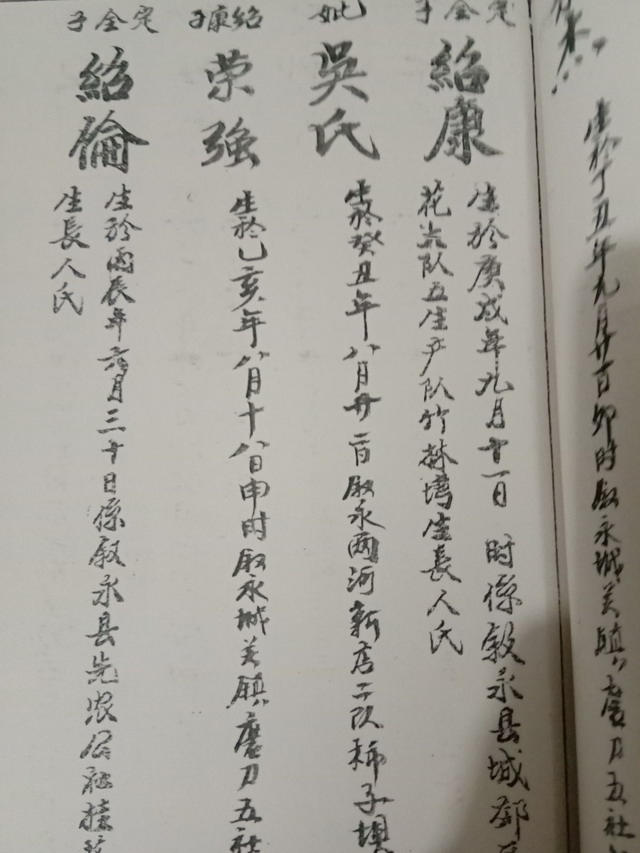 生於丁丑年九月廿一日卯时叙永城关镇磨刀五社
完全子
紹康
生於庚戌年九月十一日 时係叙永县城郊
花六队五生产队竹林塆生長人氏
妣
吳氏
生於癸丑年八月廿二日叙永兩河新店二队稀子壩
紹康子
荣强
生於乙亥年八月十八日申时叙永城关鎮磨刀五社
完全子
紹倫
生於丙辰年六月三十日係叙永县先农公社桂花
生長人氏